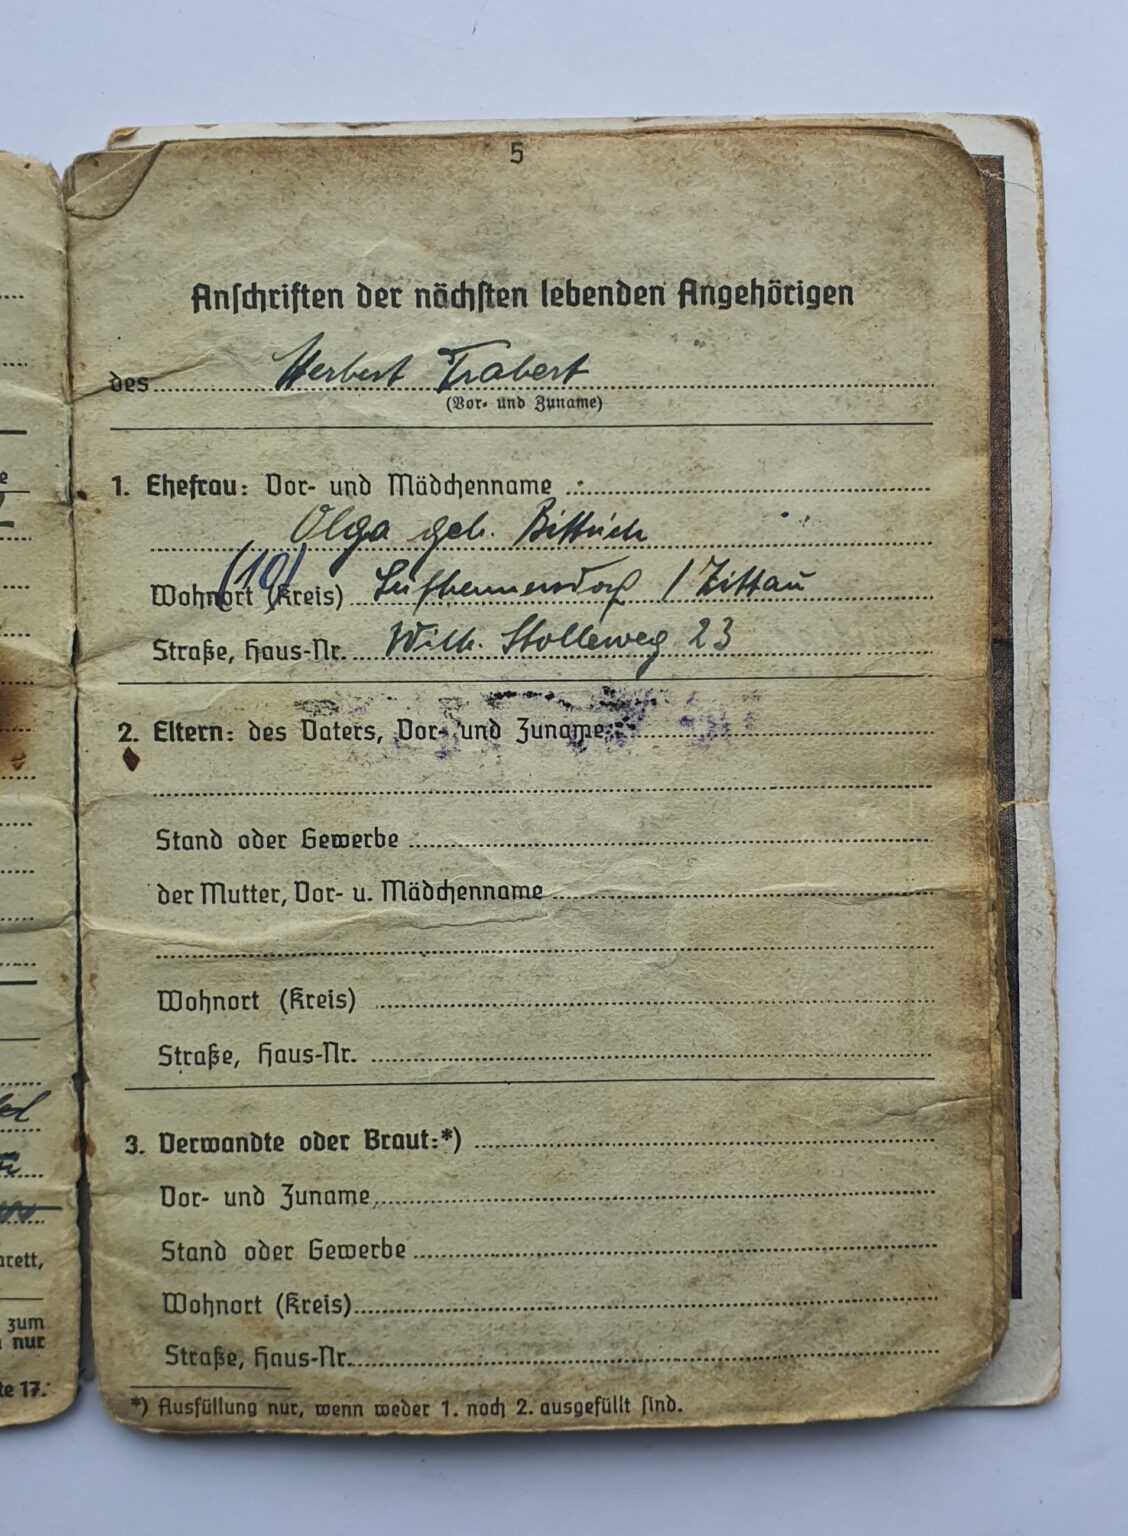 5
Anschriften der nächsten lebenden Angehörigen
des Herbert Trabert
(Vor- und Zuname)
1. Ehefrau: Vor- und Mädchenname
Olga geb. Bittrich
(10)
Wohnort (Kreis) Seifhennersdorf / Zittau
Straße, Haus-Nr. Wilh. Stolleweg 23
2. Eltern: des Vaters, Vor- und Zuname
Stand oder Gewerbe
der Mutter, Vor- u. Mädchenname
Wohnort (Kreis)
Straße, Haus-Nr.
3. Verwandte oder Braut:*)
Vor- und Zuname
Stand oder Gewerbe
Wohnort (Kreis)
Straße, Haus-Nr.
*) Ausfüllung nur, wenn weder 1. noch 2. ausgefüllt sind.
zum
nur
17.